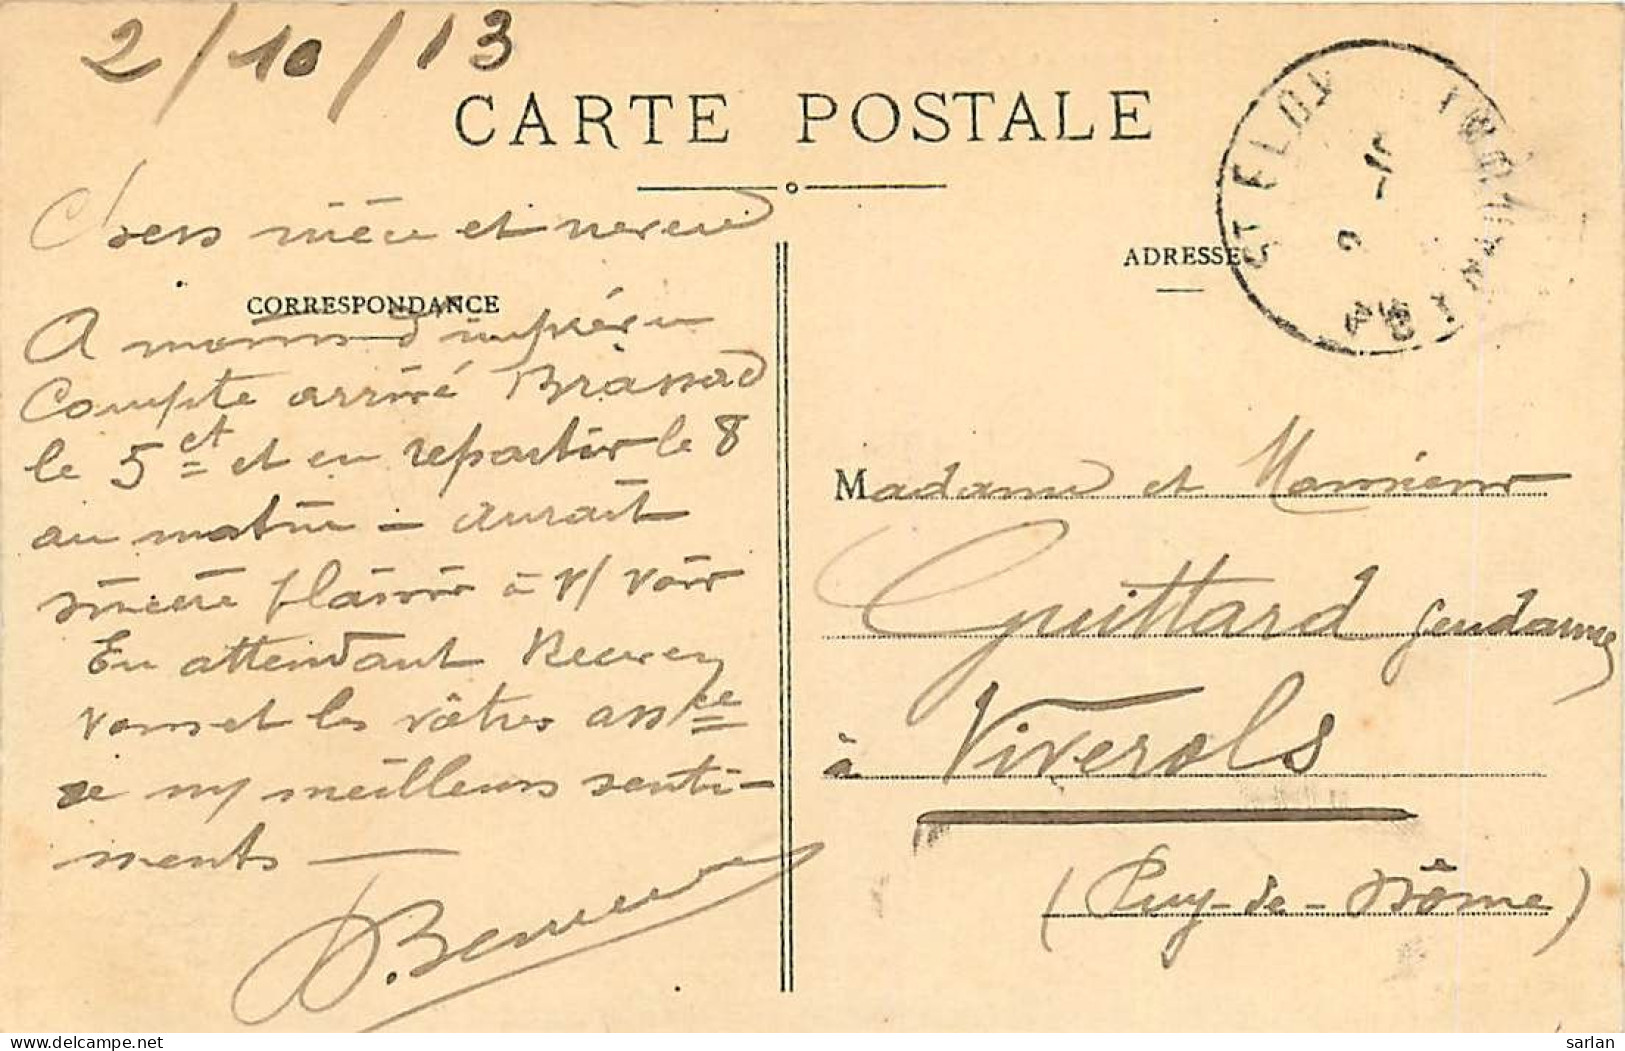 2/10/13
CARTE POSTALE
Chers nièce et neveu
CORRESPONDANCE
A moins d'imprévu
Compte arrivé Brassac
le 5 ct et en repartir le 8
au matin – aurait
sincère plaisir à v/ voir
En attendant Recevez
vous et les vôtres assce
de m/ meilleurs senti-
ments —
ADRESSE
ST ELOY
2 -10
Madame et Monsieur
Guittard gendarme
à Viverols
(Puy-de-Dôme)
delcampe.net
sarlan